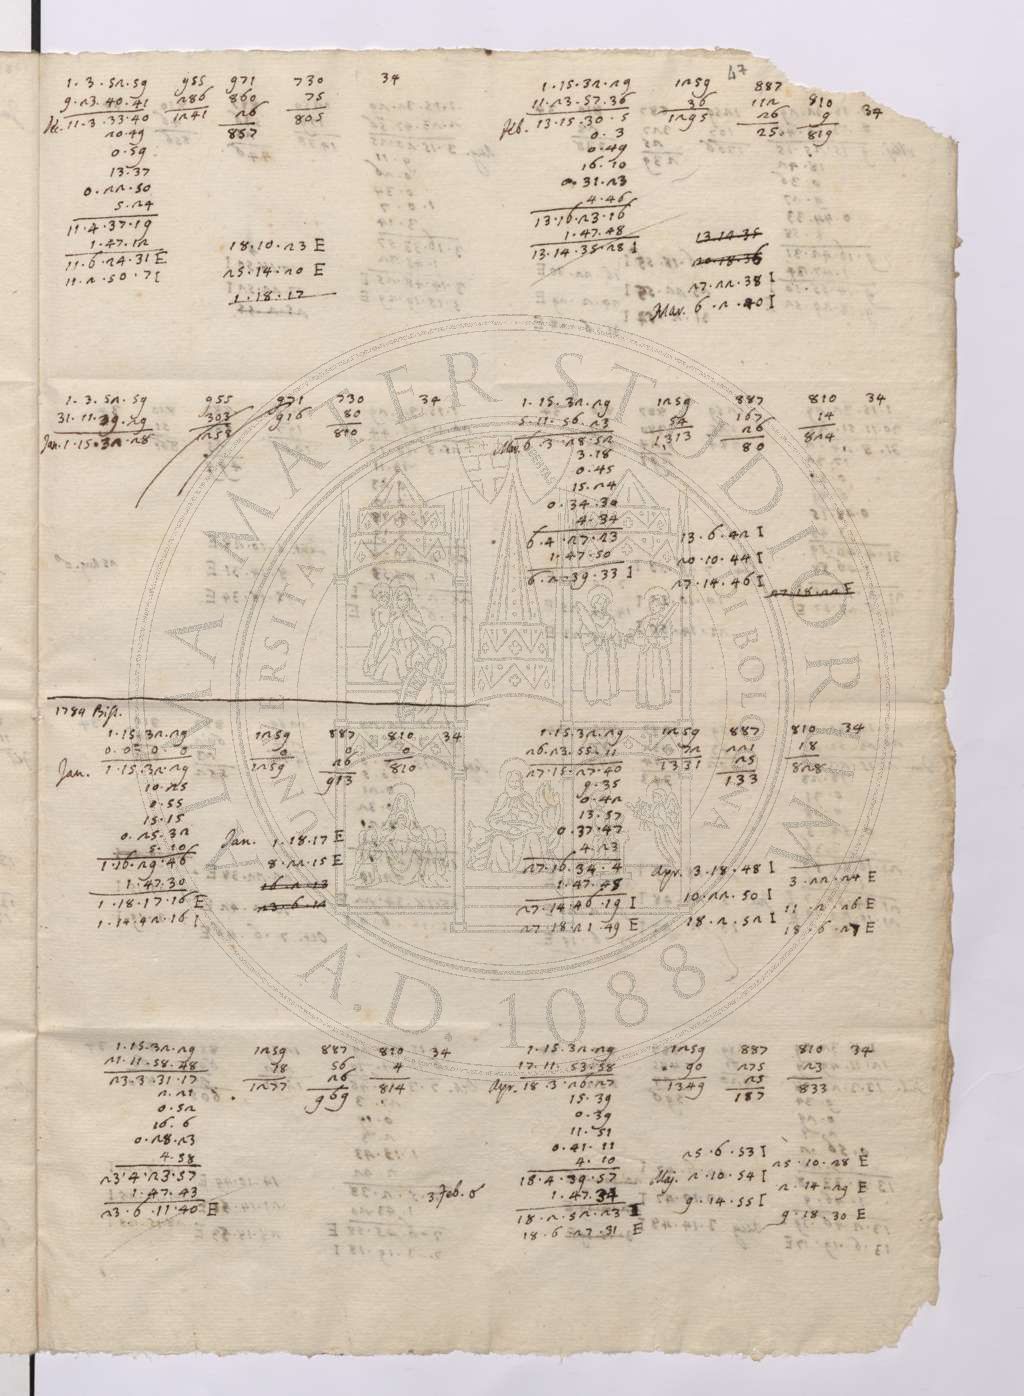 47
1·3·52·59 955 971 730 34
9·23·40·41 286 860 75
Dec. 11·3·33·40 1241 26 805
20·49 857
0·59
13·37
0·22·50
5·24
11·4·37·19
1·47·12
11·6·24·31 E
11·2·50·7 I
18·10·23 E
25·14·20 E
1·18·17
1·15·32·29 1259 887 810 34
11·23·57·36 36 112 9
Feb. 13·15·30·5 1295 26 819
0·3 25
0·49
16·10
0·31·23
4·46
13·16·23·16
1·47·48
13·14·35·28 I
13·14·35
20·18·36
27·22·38 I
Mar. 6·2·40 I
1·3·52·59 955 971 730 34
31·11·39·29 303 916 80
Jan. 1·15·32·28 1258 810
1·15·32·29 1259 887 810 34
5·11·56·23 54 167 14
Mar. 6·3·28·52 1313 26 824
3·18 80
0·45
15·24
0·34·30
4·34
6·4·27·23
1·47·50
6·2·39·33 I
13·6·42 I
20·10·44 I
27·14·46 I
27·18·22 E
1784 Biss.
1·15·32·29 1259 887 810 34
0·0·0·0 0 0 0
Jan. 1·15·32·29 1259 26 810
10·25 913
0·55
15·15
0·25·32
5·10
1·16·29·46
1·47·30
1·18·17·16 E
1·14·42·16 I
Jan. 1·18·17 E
8·22·15 E
16·2·13
23·6·14
1·15·32·29 1259 887 810 34
26·23·55·11 72 221 18
27·15·27·40 1331 25 828
9·35 133
0·42
13·57
0·37·47
4·23
27·16·34·4
1·47·48
27·14·46·19 I
27·18·21·49 E
Apr. 3·18·48 I
10·22·50 I
18·2·52 I
3·22·24 E
11·2·26 E
18·6·27 E
1·15·32·29 1259 887 810 34
21·11·58·48 18 56 4
23·3·31·17 1277 26 814
2·21 969
0·52
16·6
0·28·23
4·58
23·4·23·57
1·47·43
23·6·11·40 E
3 Feb. 6
1·15·32·29 1259 887 810 34
17·11·53·58 90 275 23
Apr. 18·3·26·27 1349 25 833
15·39 187
0·39
11·51
0·41·11
4·10
18·4·39·57
1·47·34
18·2·52·23 I
18·6·27·31 E
25·6·53 I
Maj. 2·10·54 I
9·14·55 I
25·10·28 E
2·14·29 E
9·18·30 E
ALMA MATER STUDIORUM
UNIVERSITÀ DI BOLOGNA
A.D. 1088